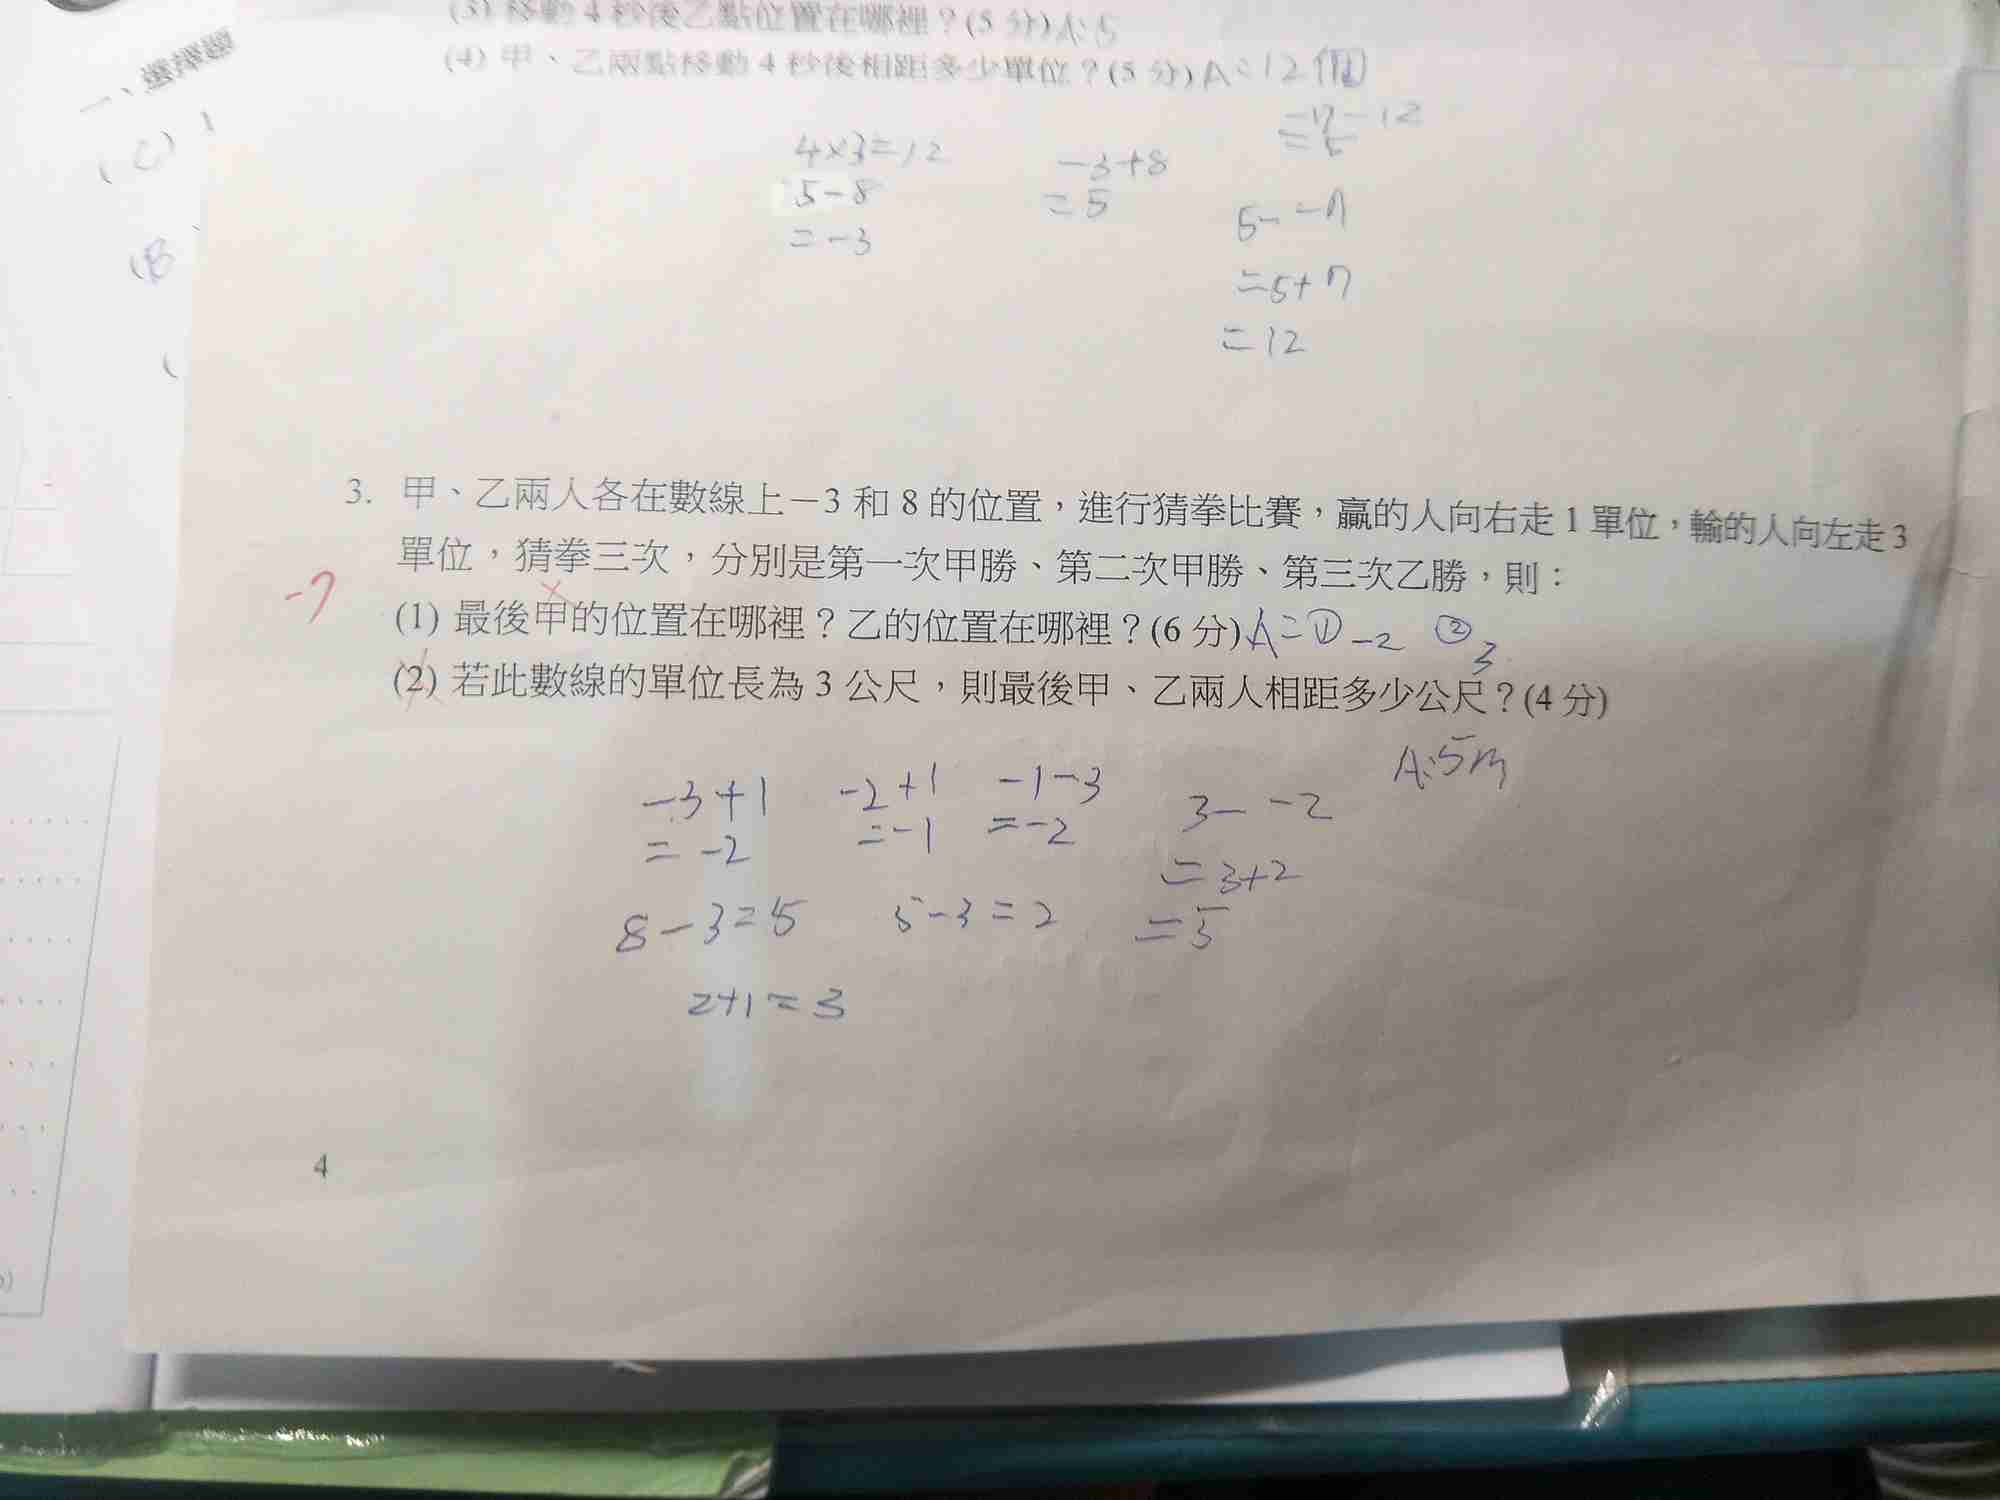 (3) 移動 4 秒後乙點位置在哪裡？(5 分) A: 5
(4) 甲、乙兩點移動 4 秒後相距多少單位？(5 分) A = 12 個
一、選擇題
(C) 1
(B
4×3=12
5-8
=-3
-3+8
=5
5--7
=5+7
=12
3. 甲、乙兩人各在數線上－3 和 8 的位置，進行猜拳比賽，贏的人向右走 1 單位，輸的人向左走 3
單位，猜拳三次，分別是第一次甲勝、第二次甲勝、第三次乙勝，則：
-7
(1) 最後甲的位置在哪裡？乙的位置在哪裡？(6 分) A = ① -2 ② 3
(2) 若此數線的單位長為 3 公尺，則最後甲、乙兩人相距多少公尺？(4 分)
A: 5m
-3+1
=-2
-2+1
=-1
-1-3
=-2
3--2
=3+2
=5
8-3=5
5-3=2
2+1=3
4